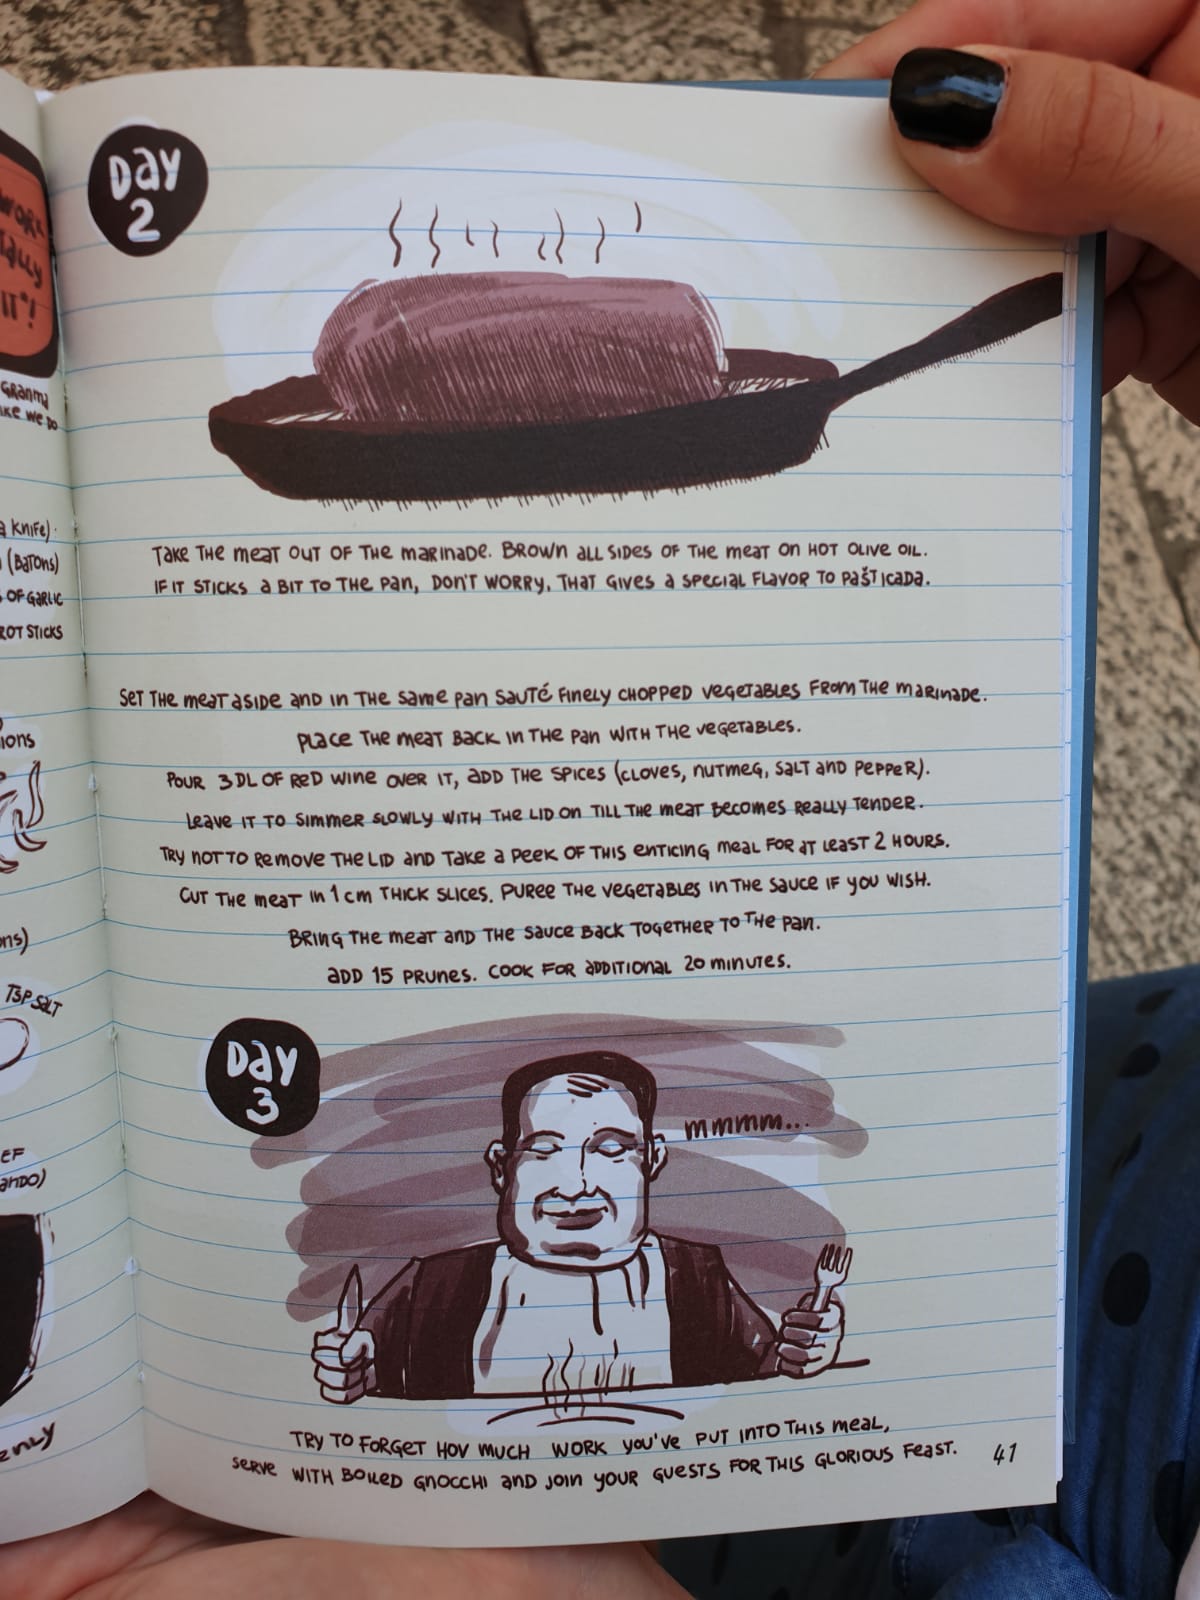 WORK
TALLY
IT"!
GRANMA
KE WE DO
KNIFE).
(BATONS)
OF GARLIC
ROT STICKS
IONS
ONS)
TSP SALT
EF
ANDO)
ENLY
Day
2
TAKE THE MEAT OUT OF THE MARINADE. BROWN ALL SIDES OF THE MEAT ON HOT OLIVE OIL.
IF IT STICKS A BIT TO THE PAN, DON'T WORRY, THAT GIVES A SPECIAL FLAVOR TO PAŠTICADA.
SET THE MEAT ASIDE AND IN THE SAME PAN SAUTÉ FINELY CHOPPED VEGETABLES FROM THE MARINADE.
PLACE THE MEAT BACK IN THE PAN WITH THE VEGETABLES.
POUR 3 DL OF RED WINE OVER IT, ADD THE SPICES (CLOVES, NUTMEG, SALT AND PEPPER).
LEAVE IT TO SIMMER SLOWLY WITH THE LID ON TILL THE MEAT BECOMES REALLY TENDER.
TRY NOT TO REMOVE THE LID AND TAKE A PEEK OF THIS ENTICING MEAL FOR AT LEAST 2 HOURS.
CUT THE MEAT IN 1 CM THICK SLICES. PUREE THE VEGETABLES IN THE SAUCE IF YOU WISH.
BRING THE MEAT AND THE SAUCE BACK TOGETHER TO THE PAN.
ADD 15 PRUNES. COOK FOR ADDITIONAL 20 MINUTES.
Day
3
mmmm...
TRY TO FORGET HOV MUCH WORK YOU'VE PUT INTO THIS MEAL,
SERVE WITH BOILED GNOCCHI AND JOIN YOUR GUESTS FOR THIS GLORIOUS FEAST.
41